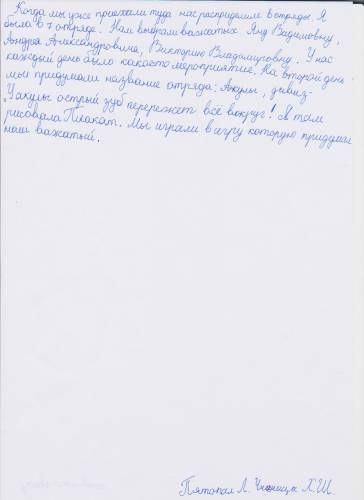 Когда мы уже приехали туда нас распридилили в отряды. Я
была в 7 отряде. Нам выбрали важатых Яну Вадимовну,
Андрея Александровича, Викторию Владимировну. У нас
каждый день было какоето мероприятие. На второй день
мы придумали название отряда: Акулы, девиз-
"У акулы острый зуб перережет всё вокруг! Я там
рисовала Плакат. Мы играли в игру которую придумал
наш важатый.
Пятопал Л. Ученица Х.Ш.